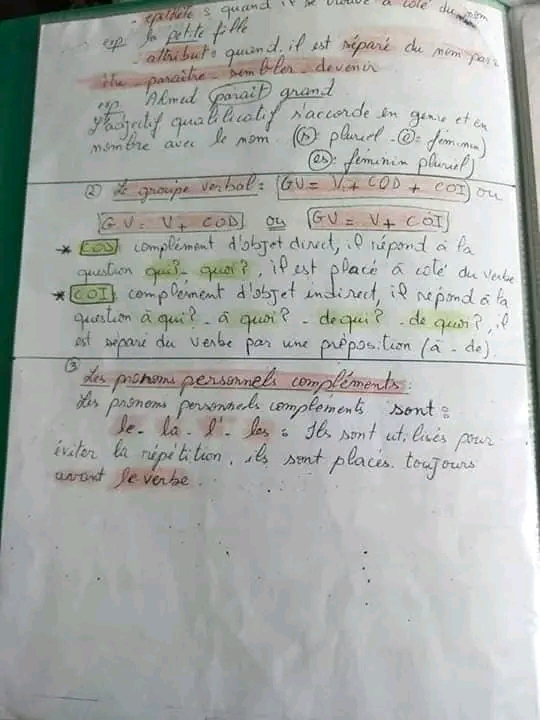 - épithète : quand il se trouve à côté du nom
exp la petite fille
- attribut : quand il est séparé du nom par
être - paraître - sembler - devenir
exp. Ahmed paraît grand
L'adjectif qualificatif s'accorde en genre et en
nombre avec le nom. (s): pluriel - (e): féminin)
(es): féminin pluriel)
② Le groupe verbal: [GV = V + COD + COI] ou
[GV = V + COD] ou [GV = V + COI]
* COD: complément d'objet direct, il répond à la
question qui? - quoi?, il est placé à coté du verbe
* COI: complément d'objet indirect, il répond à la
question à qui? - à quoi? - de qui? - de quoi?, il
est séparé du verbe par une préposition (à - de).
③ Les pronoms personnels compléments:
Les pronoms personnels compléments sont:
le - la - l' - les : Ils sont utilisés pour
éviter la répétition, ils sont placés toujours
avant le verbe.